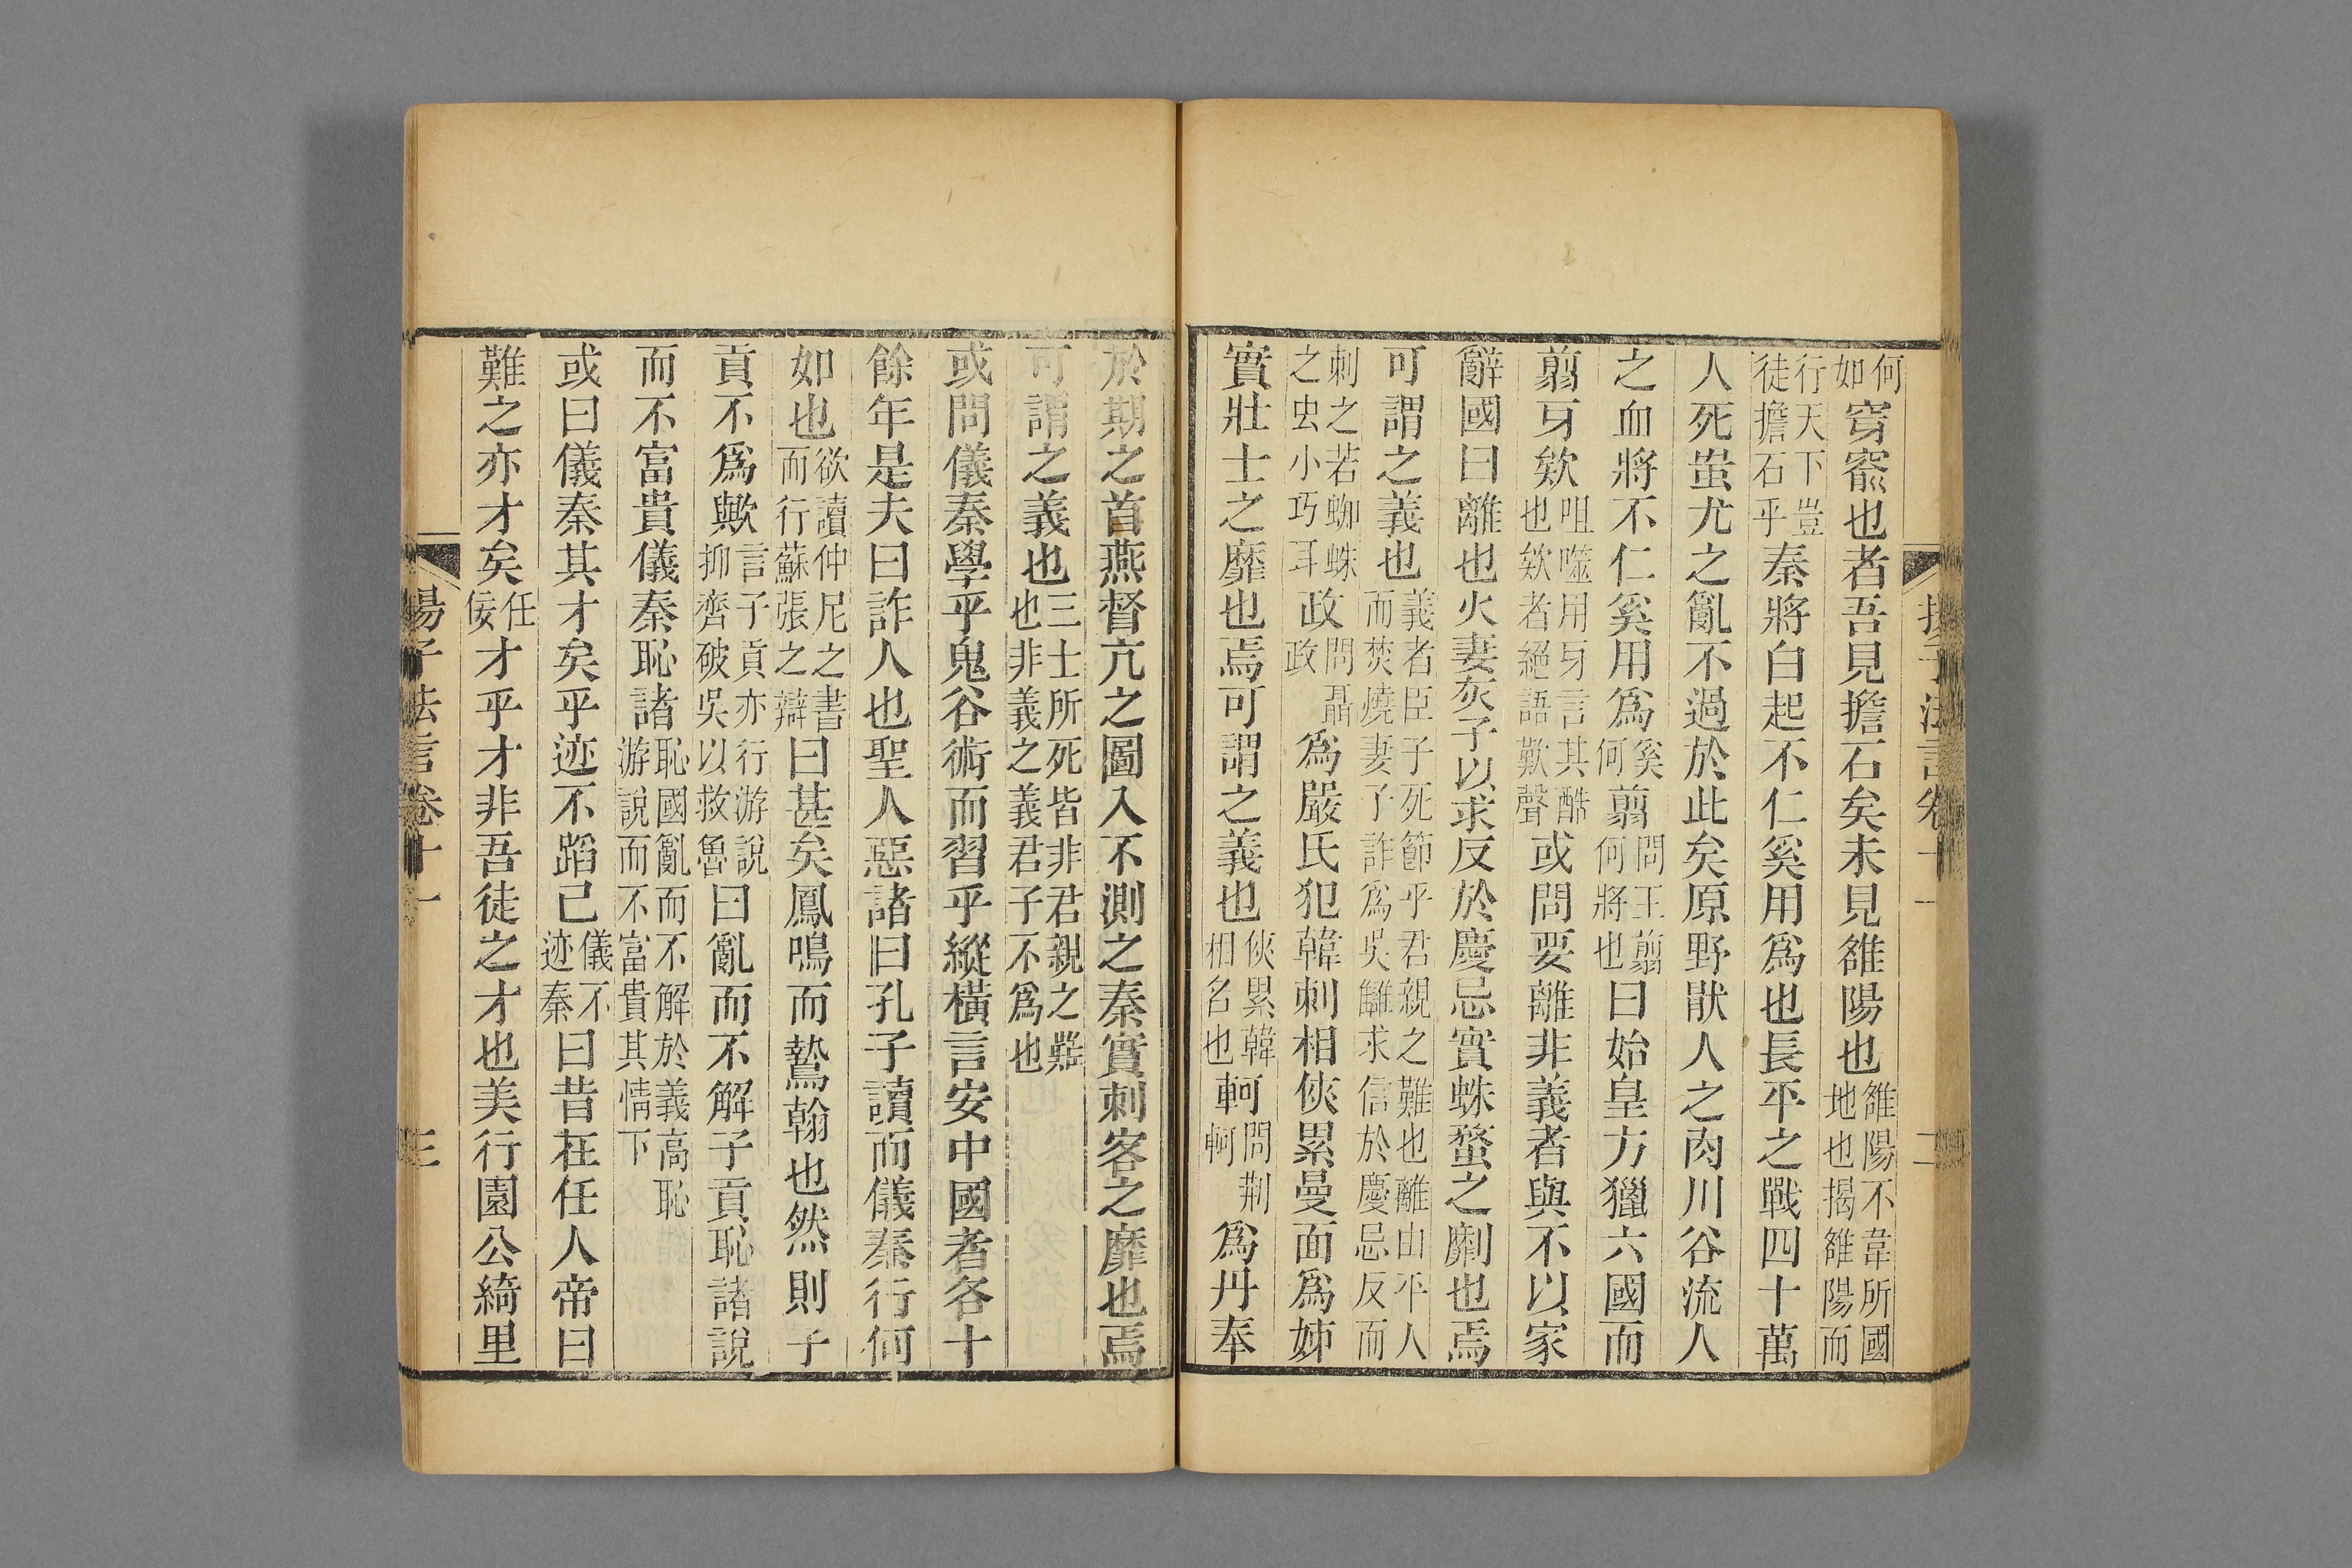 何如穿窬也者吾見擔石矣未見雒陽也雒陽不韋所國地也揭雒陽而
行天下豈徒擔石乎秦將白起不仁奚用爲也長平之戰四十萬
人死蚩尤之亂不過於此矣原野猒人之肉川谷流人
之血將不仁奚用爲奚何翦問王翦何將也曰始皇方獵六國而
翦牙欸咀噬用牙言其酷也欸者絕語歎聲或問要離非義者與不以家
辭國曰離也火妻灰子以求反於慶忌實蛛蝥之劘也焉
可謂之義也義者臣子死節乎君親之難也離由平人而焚燒妻子詐爲吳讎求信於慶忌反而
刺之若蜘蛛之虫小巧耳政問聶政爲嚴氏犯韓刺相俠累曼面爲姊
實壯士之靡也焉可謂之義也俠累韓相名也軻問荆軻爲丹奉
於期之首燕督亢之圖入不測之秦實刺客之靡也焉
可謂之義也三士所死皆非君親之難也非義之義君子不爲也
或問儀秦學乎鬼谷術而習乎縱橫言安中國者各十
餘年是夫曰詐人也聖人惡諸曰孔子讀而儀秦行何
如也欲讀仲尼之書而行蘇張之辯曰甚矣鳳鳴而鷙翰也然則子
貢不爲歟言子貢亦行游說抑齊破吳以救魯曰亂而不解子貢恥諸說
而不富貴儀秦恥諸恥國亂而不解於義高恥游說而不富貴其情下
或曰儀秦其才矣乎迹不蹈己儀不迹秦曰昔在任人帝曰
難之亦才矣任佞才乎才非吾徒之才也美行園公綺里
揚子法言卷十一 三